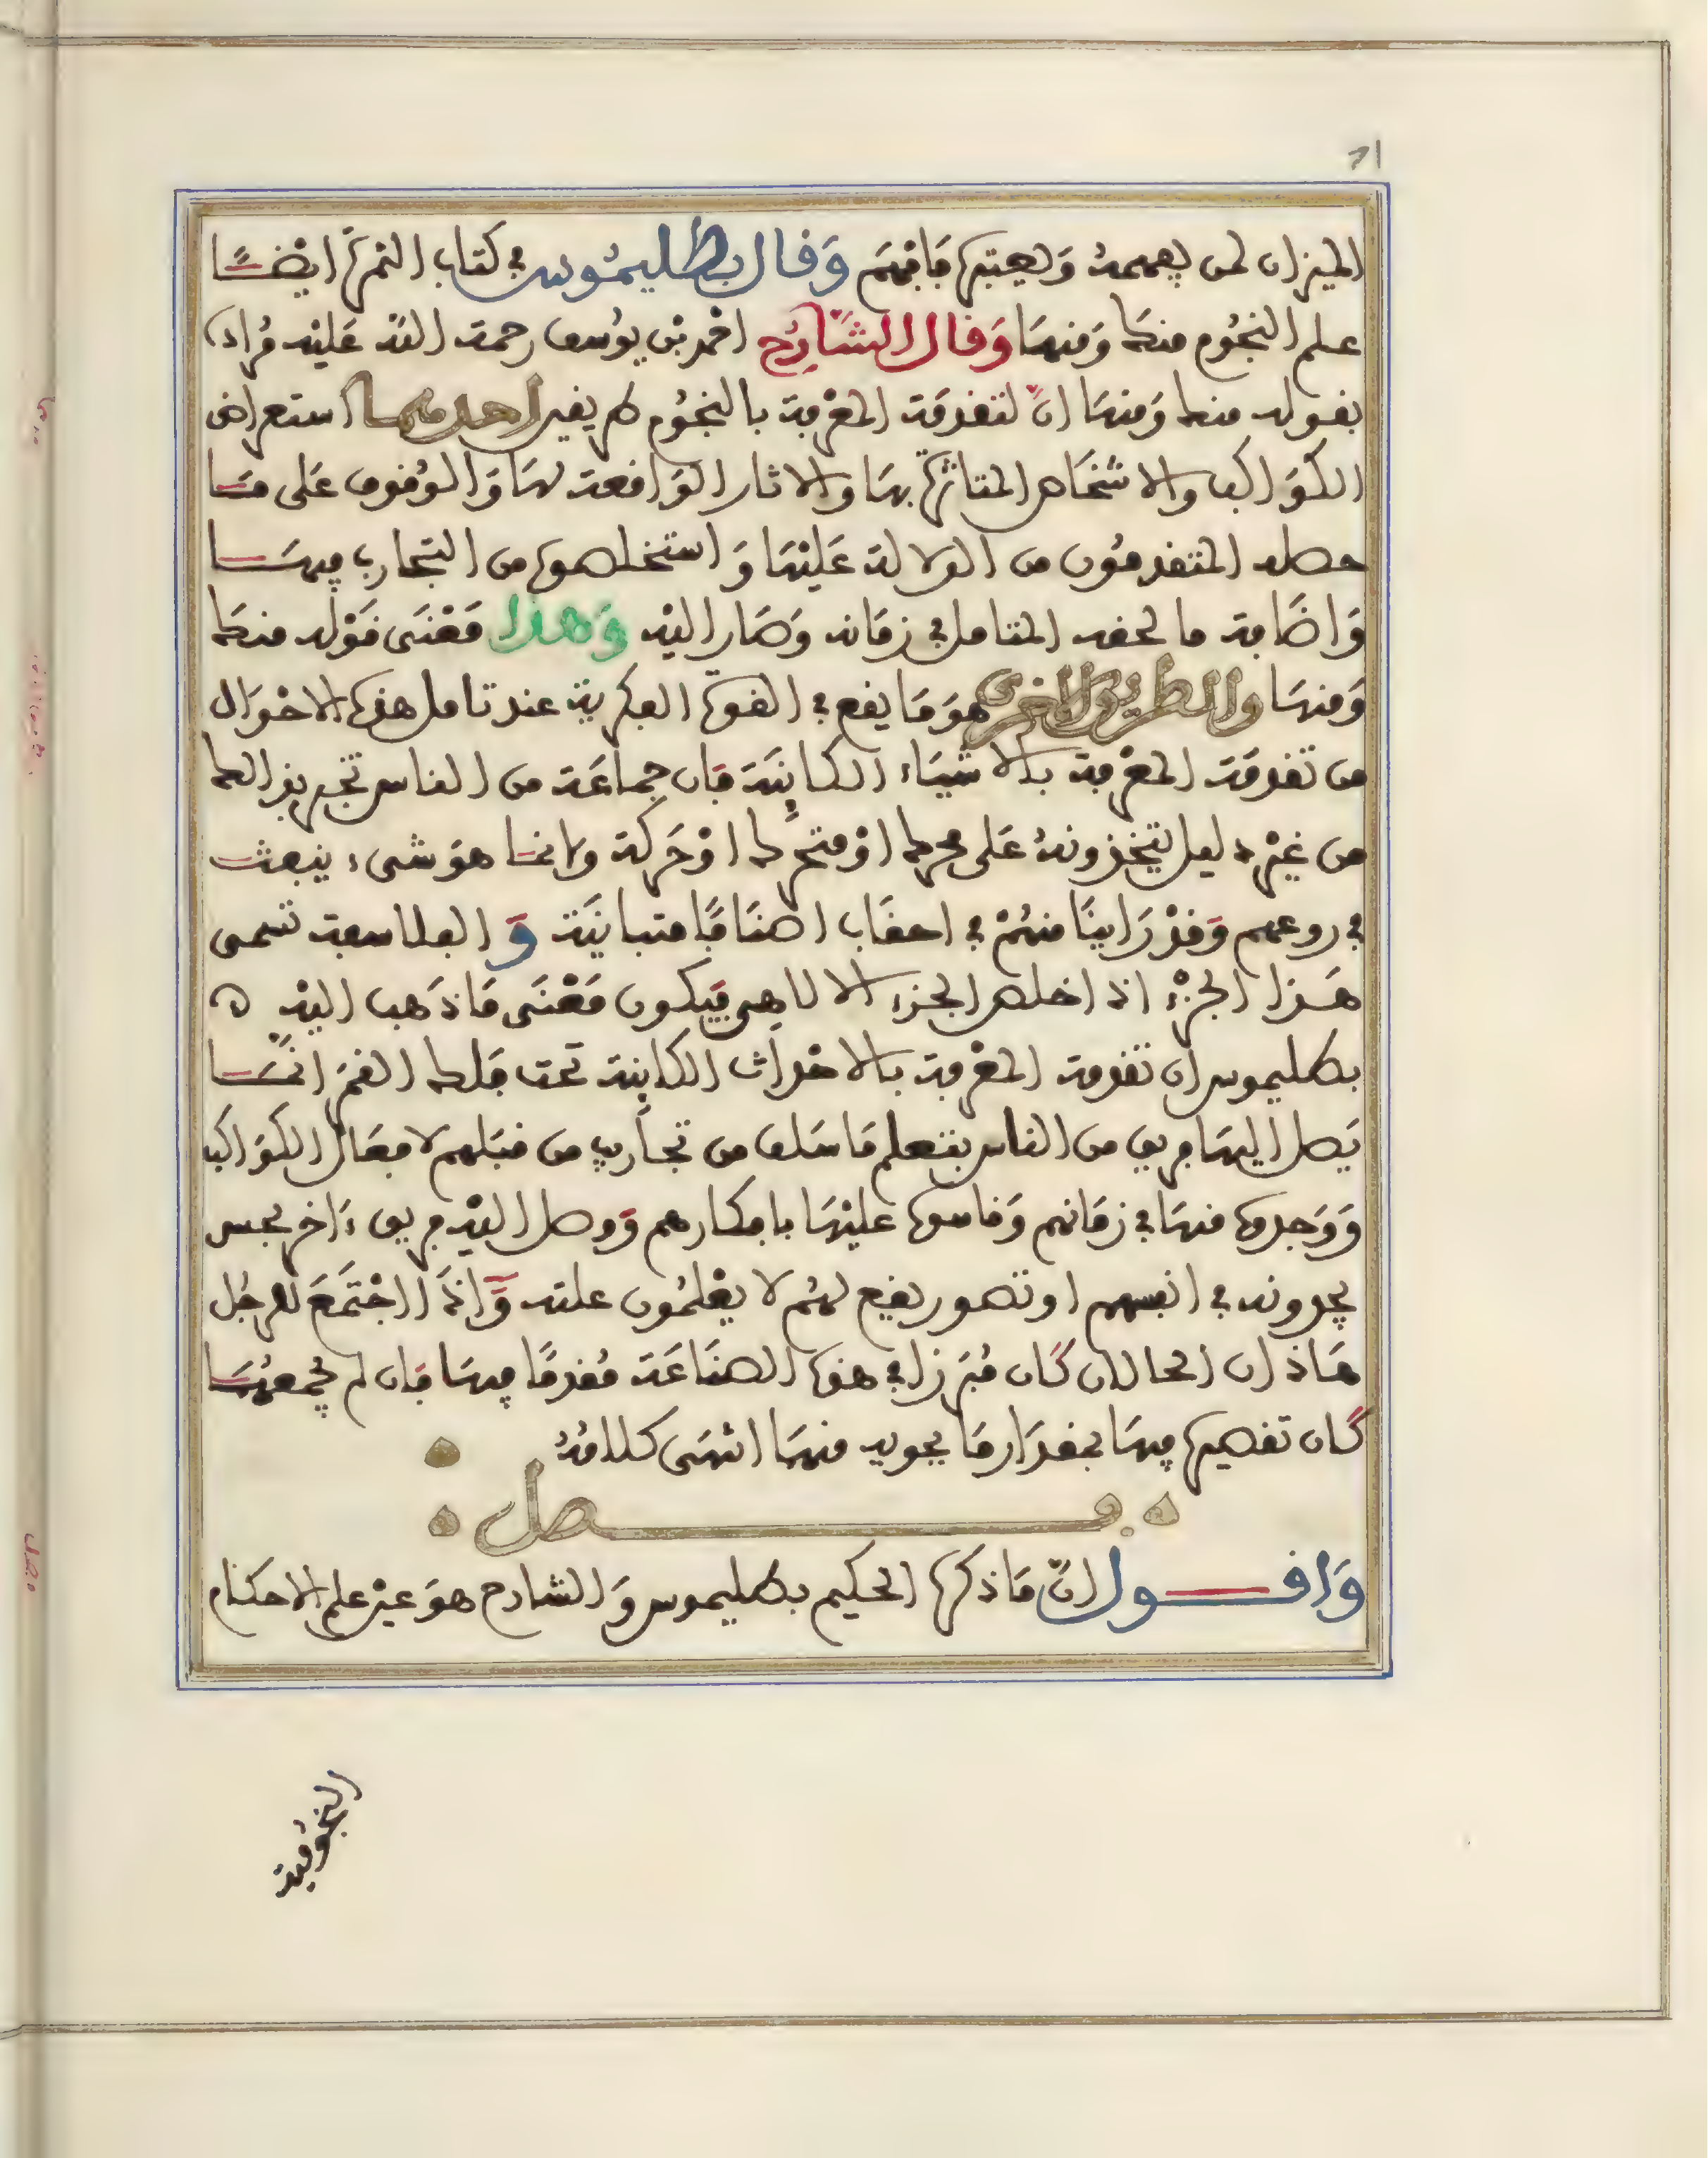 الميزان لمن يفهمه ويعتبره فافهم وقال بطليموس في كتاب الثمرة ايضا
علم النجوم منك ومنها وقال الشارح احمد بن يوسف رحمة الله عليه مراده
بقوله منك ومنها ان لتقدمة المعرفة بالنجوم طريقين احدهما استعراض
الكواكب والاشخاص المتاثرة بها والاثار الواقعة لها والوقوف على ما
حصله المتقدمون من الدلالة عليها واستخلصوه من التجارب فيها
واضافة ما لحقه المتامل في زمانه وصار اليه وهذا معنى قوله منك
ومنها والطريق الاخرى هو ما يقع في القوة الفكرية عند تامل هذه الاحوال
من تقدمة المعرفة بالاشياء الكاينة فان جماعة من الناس تجري بذالك
من غير دليل يتخذونه على فكرة او فتح او حركة وانما هو شيء ينبعث
في روعهم وقد راينا منهم في احقاب اصنافا متباينة و الفلاسفة تسمى
هذا الجزء اذا خلص الجزء الالاهي فيكون معنى ما ذهب اليه
بطليموس ان تقدمة المعرفة بالاحداث الكاينة تحت فلك القمر انما
يصل اليها فريق من الناس بتعلم ما سلف من تجارب من قبلهم لافعال الكواكب
ووجدوه منها في زمانهم وقاسوه عليها بافكارهم ووصل اليه فريق ءاخر بحس
يجدونه في انفسهم او تصور يقع لهم لا يعلمون علته واذا اجتمع للرجل
هاذان الحالان كان مبرزا في هذه الصناعة مقدما فيها فان لم يجمعهما
كان تقصيره فيها بمقدار ما يجويه منها انتهى كلامه
فصل
واقول ان ما ذكره الحكيم بطليموس والشارح هو عين علم الاحكام
النجومية